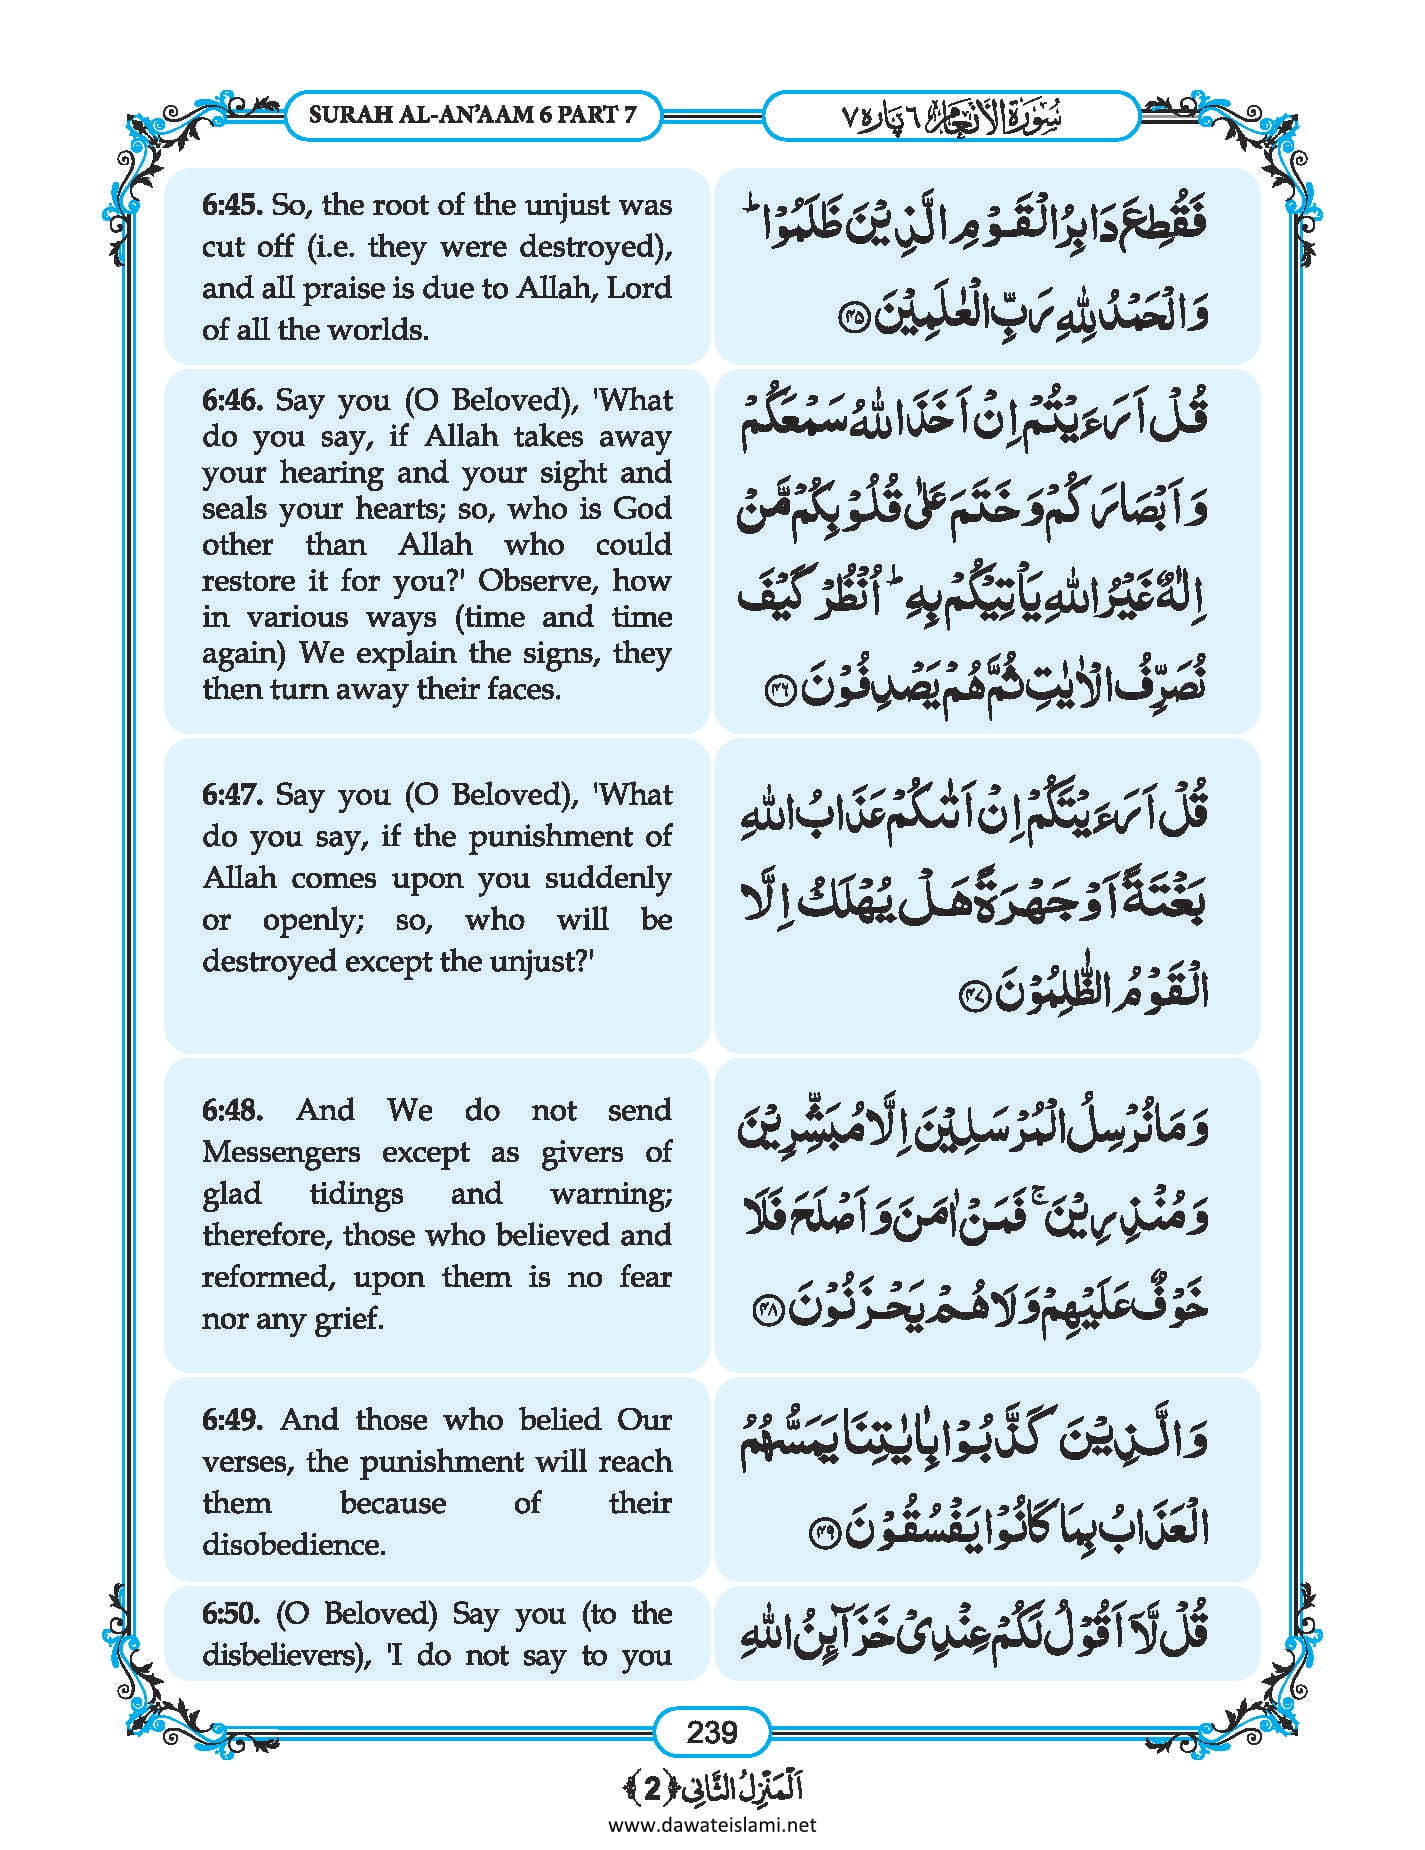 SURAH AL-AN'AAM 6 PART 7
سُوْرَةُ الْاَنْعَام ٦ پَارَه ٧
6:45. So, the root of the unjust was
cut off (i.e. they were destroyed),
and all praise is due to Allah, Lord
of all the worlds.
فَقُطِعَ دَابِرُ الْقَوْمِ الَّذِیْنَ ظَلَمُوْا ؕ
وَ الْحَمْدُ لِلّٰهِ رَبِّ الْعٰلَمِیْنَ ﴿۴۵﴾
6:46. Say you (O Beloved), 'What
do you say, if Allah takes away
your hearing and your sight and
seals your hearts; so, who is God
other than Allah who could
restore it for you?' Observe, how
in various ways (time and time
again) We explain the signs, they
then turn away their faces.
قُلْ اَرَءَیْتُمْ اِنْ اَخَذَ اللّٰهُ سَمْعَكُمْ
وَ اَبْصَارَكُمْ وَ خَتَمَ عَلٰی قُلُوْبِكُمْ مَّنْ
اِلٰهٌ غَیْرُ اللّٰهِ یَاْتِیْكُمْ بِهٖ ؕ اُنْظُرْ كَیْفَ
نُصَرِّفُ الْاٰیٰتِ ثُمَّ هُمْ یَصْدِفُوْنَ ﴿۴۶﴾
6:47. Say you (O Beloved), 'What
do you say, if the punishment of
Allah comes upon you suddenly
or openly; so, who will be
destroyed except the unjust?'
قُلْ اَرَءَیْتَكُمْ اِنْ اَتٰىكُمْ عَذَابُ اللّٰهِ
بَغْتَةً اَوْ جَهْرَةً هَلْ یُهْلَكُ اِلَّا
الْقَوْمُ الظّٰلِمُوْنَ ﴿۴۷﴾
6:48. And We do not send
Messengers except as givers of
glad tidings and warning;
therefore, those who believed and
reformed, upon them is no fear
nor any grief.
وَ مَا نُرْسِلُ الْمُرْسَلِیْنَ اِلَّا مُبَشِّرِیْنَ
وَ مُنْذِرِیْنَ ۚ فَمَنْ اٰمَنَ وَ اَصْلَحَ فَلَا
خَوْفٌ عَلَیْهِمْ وَ لَا هُمْ یَحْزَنُوْنَ ﴿۴۸﴾
6:49. And those who belied Our
verses, the punishment will reach
them because of their
disobedience.
وَ الَّذِیْنَ كَذَّبُوْا بِاٰیٰتِنَا یَمَسُّهُمُ
الْعَذَابُ بِمَا كَانُوْا یَفْسُقُوْنَ ﴿۴۹﴾
6:50. (O Beloved) Say you (to the
disbelievers), 'I do not say to you
قُلْ لَّاۤ اَقُوْلُ لَكُمْ عِنْدِیْ خَزَآىِٕنُ اللّٰهِ
239
اَلْمَنْزِلُ الثَّانِی ﴿2﴾
www.dawateislami.net